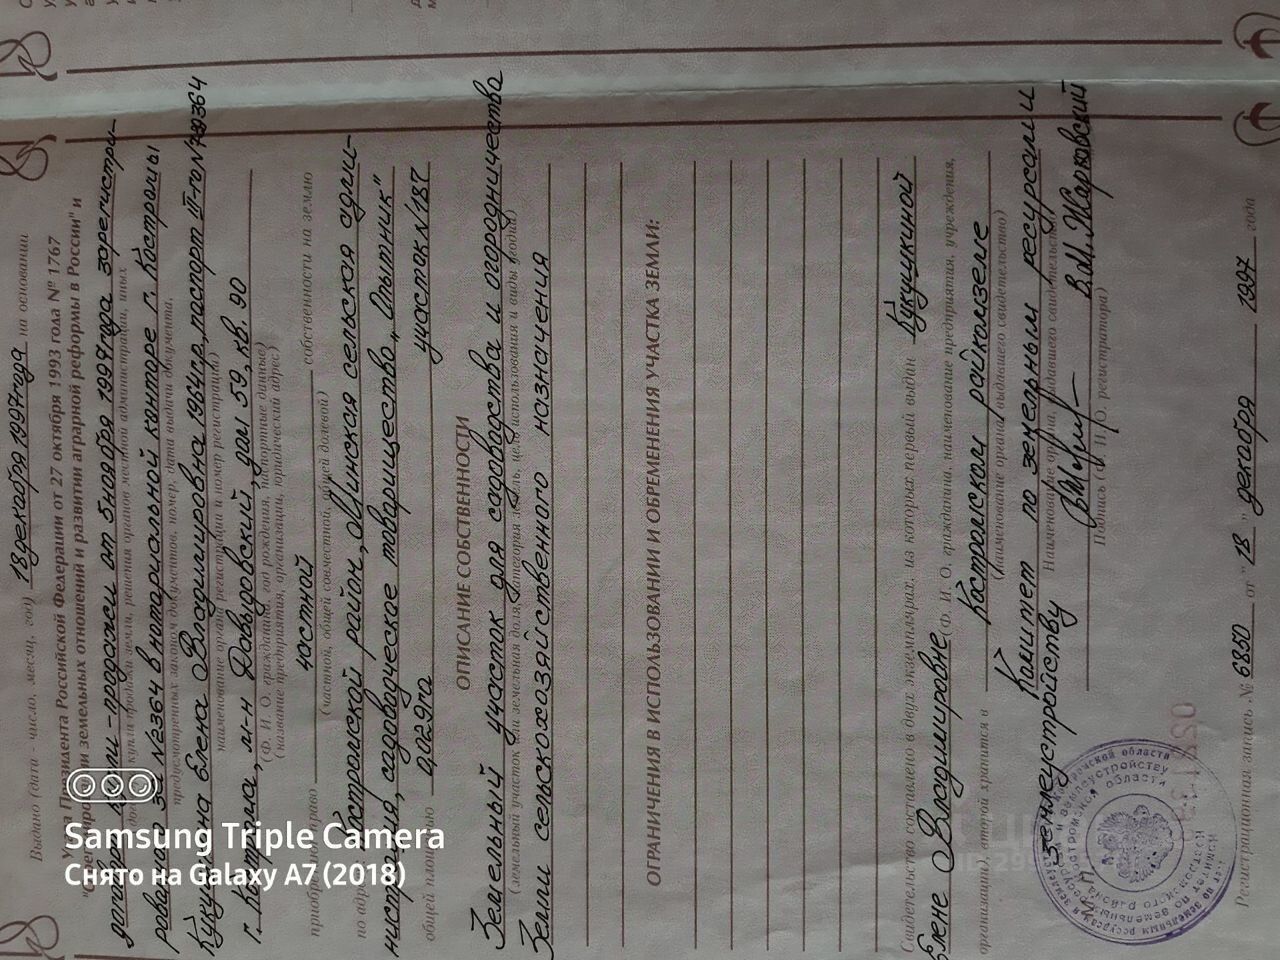 Выдано (дата - число, месяц, год) 18 декабря 1997 года на основании
Указа Президента Российской Федерации от 27 октября 1993 года № 1767
земельных отношений и развитии аграрной реформы в России" и
договора купли-продажи от 5 ноября 1997 года зарегистри-
купли-продажи земли, решения органов местной администрации, иных
рованого за №2364 в нотариальной конторе г. Костромы
предусмотренных законом документов, номер, дата выдачи документа,
наименование органа регистрации и номер регистрации)
Кукушкина Елена Владимировна 1964гр., паспорт
(Ф. И. О. гражданина, год рождения, паспортные данные)
г. Кострома, м-н Давыдовский, дом 59, кв. 90
(название предприятия, организации, юридический адрес)
приобрела право частной собственности на землю
(частной, общей совместной, общей долевой)
по адресу Костромской район, Минская сельская адми-
нистрация, садоводческое товарищество „Опытник"
общей площадью 0,029га участок №187
ОПИСАНИЕ СОБСТВЕННОСТИ
Земельный участок для садоводства и огородничества
(земельный участок или земельная доля, категория земель, цель использования и виды угодий)
Земли сельскохозяйственного назначения
ОГРАНИЧЕНИЯ В ИСПОЛЬЗОВАНИИ И ОБРЕМЕНЕНИЯ УЧАСТКА ЗЕМЛИ:
Свидетельство составлено в двух экземплярах, из которых первый выдан Кукушкиной
Елене Владимировне (Ф. И. О. гражданина, наименование предприятия, учреждения,
организации), второй хранится в Костромском райкомземе
(наименование органа, выдавшего свидетельство)
Комитет по земельным ресурсам и
Наименование органа, выдавшего свидетельство
землеустройству В.М. Жарковский
Подпись (Ф. И. О. регистратора)
Регистрационная запись № 6850 от " 18 " декабря 1997 года
Samsung Triple Camera
Снято на Galaxy A7 (2018)